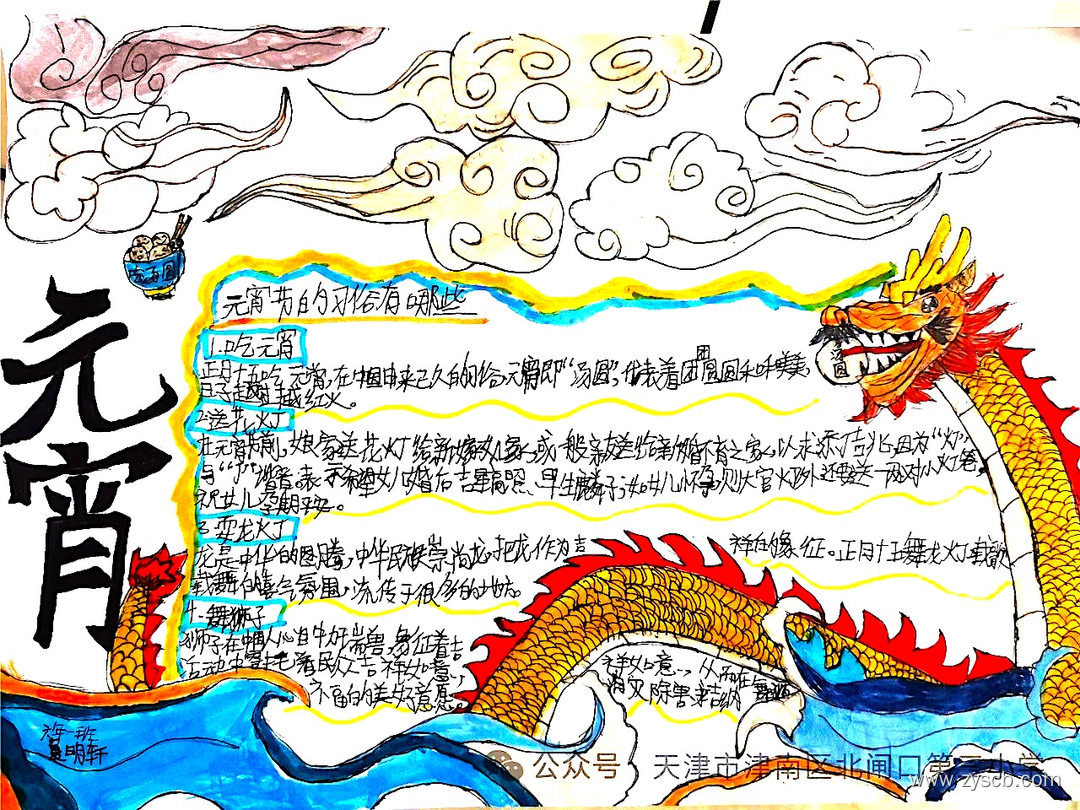 元宵
吃汤圆
汤圆
元宵节的习俗有哪些
1.吃元宵
正月十五吃元宵,在中国由来已久的习俗,元宵即“汤圆”,代表着团圆和美,
日子越过越红火。
2.送花火灯
在元宵节前,娘家送花火灯给新嫁女儿家,或一般亲友送给新婚不育之家,以求添丁吉兆,因为“灯”
与“丁”谐音。表示希望女儿婚后吉星高照、早生麟子;如女儿怀孕,则大宫灯外还要送一两对小灯笼,
祝女儿孕期平安。
3.耍龙火灯
龙是中华的图腾,中华民族崇尚龙,把龙作为吉祥的象征。正月十五舞龙火灯
载舞的喜气氛围,流传于很多的地方。
4.舞狮子
狮子在中国人心目中为瑞兽,象征着吉祥如意,从而在
活动中寄托着民众吉祥如意,消灾除害求吉纳
的美好意愿。
六年一班
明轩
公众号 天津市津南区北闸口第二小学
www.zyscb.com